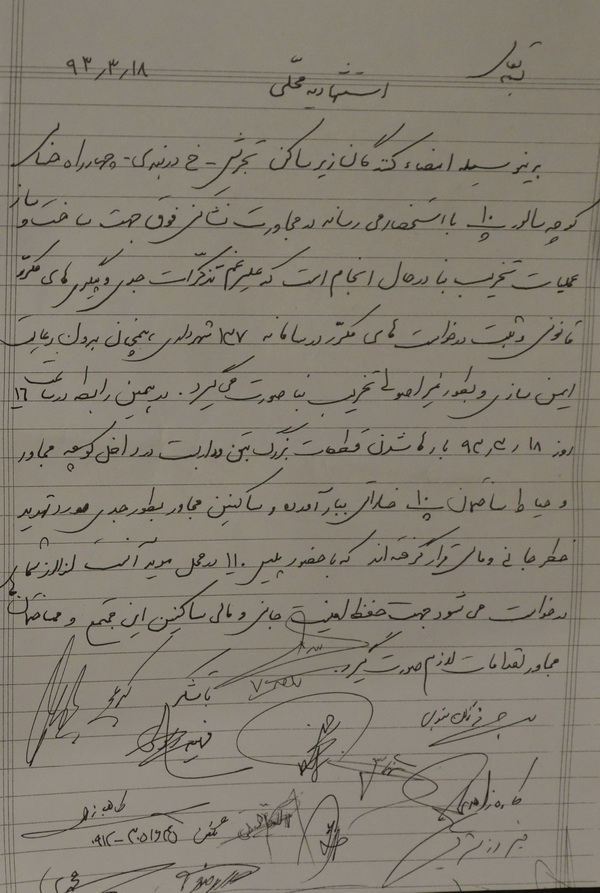 بتعالی ۹۳٫۳٫۱۸
استشهادیه محلّی
بدینوسیله امضاء کنندگان زیر ساکن تجریش - خ دربندی - چهارراه
کوچه سالور پ ۱۰ با استحضار می رساند در مجاورت نشانی فوق جهت ساخت و ساز
عملیات تخریب بنا در حال انجام است که علیرغم تذکّرات جدی و پیگیری های مکرّر
قانونی و ثبت درخواست های مکرّر در سامانه ۱۳۷ شهرداری، همچنان بدون رعایت
ایمن سازی و بطور غیر اصولی تخریب بنا صورت می گیرد. در همین رابطه در ساعت ۱۶
روز ۹۳٫۳٫۱۸ با رها شدن قطعات بزرگ بتن و داربست در داخل کوچه مجاور
و حیاط ساختمان پ ۱۰ خساراتی ببار آمده و ساکنین مجاور بطور جدی مورد تهدید
خطر جانی و مالی قرار گرفته اند که با حضور پلیس ۱۱۰ در محل موید آنست لذا از شما
درخواست می شود جهت حفظ امنیت جانی و مالی ساکنین این مجتمع و ساختمان های
مجاور اقدامات لازم صورت گیرد.
با تشکر